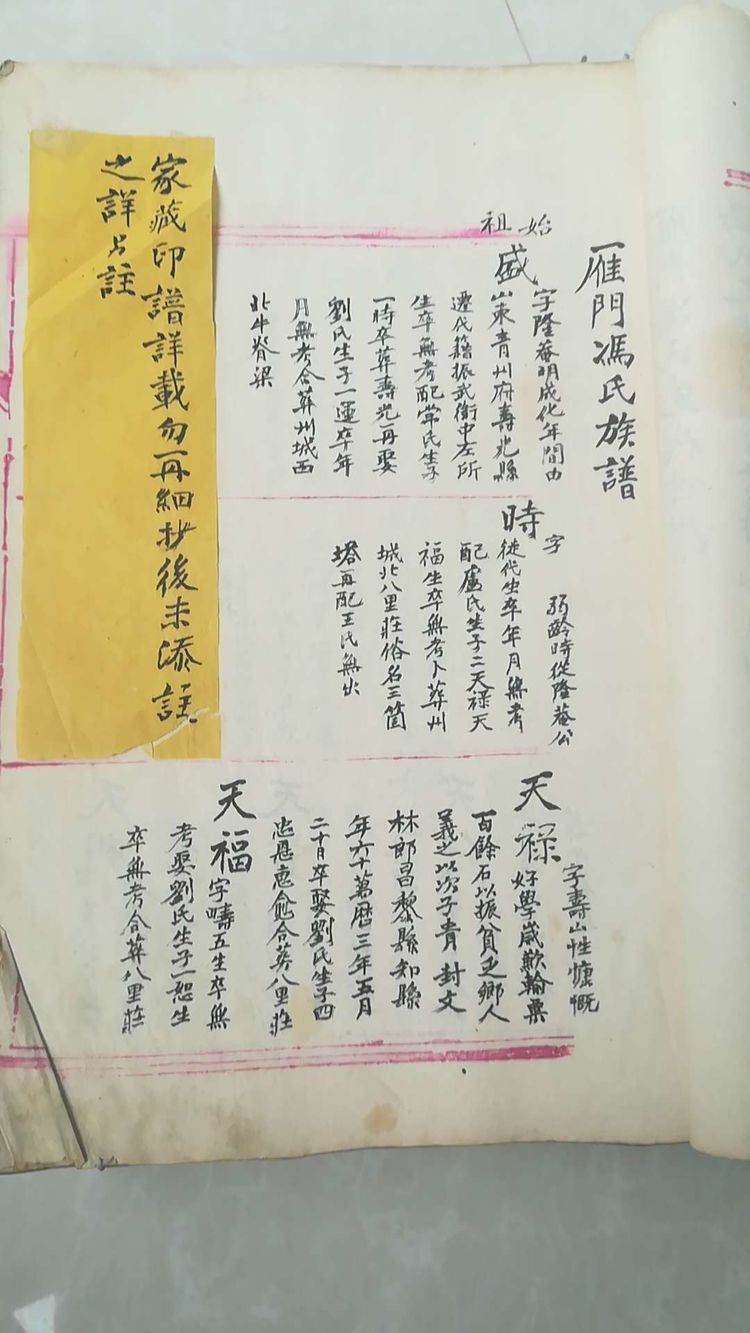 雁門馮氏族譜
始祖
盛
字隆菴明成化年間由
山東青州府壽光縣
遷代籍振武衛中左所
生卒無考配常氏生子
一時卒葬壽光再娶
劉氏生子一運卒年
月無考合葬州城西
北牛脊梁
時
字 弱齡時從隆菴公
徙代生卒年月無考
配盧氏生子二天祿天
福生卒無考卜葬州
城北八里莊俗名三箇
塔再配王氏無出
天祿
字壽山性慷慨
好學歲歉輸粟
百餘石以振貧乏鄉人
義之以次子貴封文
林郎昌黎縣知縣
年六十萬曆三年五月
二十日卒娶劉氏生子四
忠恩惠愈合葬八里莊
天福
字疇五生卒無
考娶劉氏生子一恕生
卒無考合葬八里莊
家藏印譜詳載勿再細抄後未添註
之詳另註